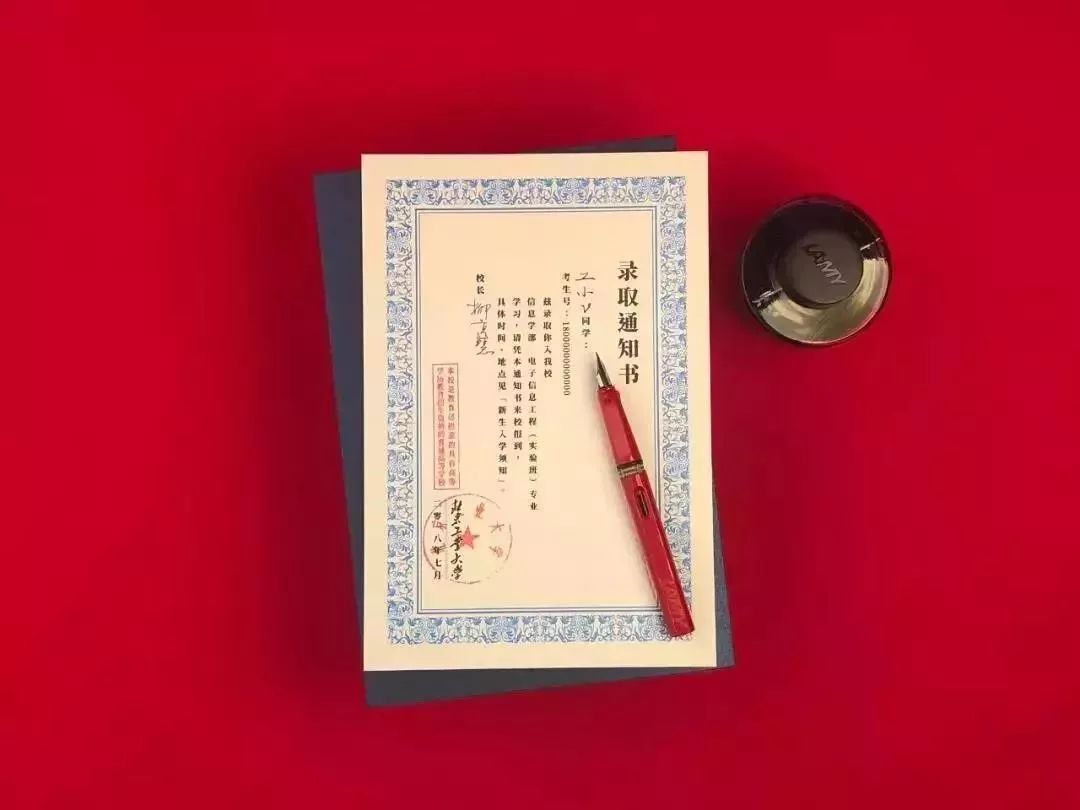 录取通知书
王小工同学：
考生号：18000000000000
兹录取你入我校
信息学部 电子信息工程（实验班）专业
学习，请凭本通知书来校报到，
具体时间、地点见「新生入学须知」。
校长
本校是教育部批准的具有高等
学历教育招生资格的普通高等学校
北京工业大学
二零一八年七月
LAMY
LAMY